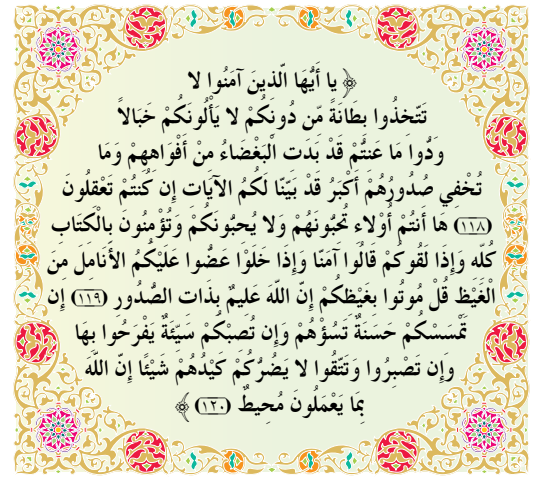 ﴿ يا أَيُّهَا الَّذينَ آمَنُوا لا
تَتَّخِذُوا بِطَانَةً مِّن دُونِكُمْ لا يَأْلُونَكُمْ خَبَالاً
وَدُّوا مَا عَنتُّمْ قَدْ بَدَت الْبَغْضَاءُ مِنْ أَفْوَاهِهِمْ وَمَا
تُخْفِي صُدُورُهُمْ أَكْبَرُ قَدْ بَيَّنَا لَكُمُ الآيَاتِ إِن كُنتُمْ تَعْقِلُونَ
(١١٨) هَا أَنتُمْ أُوْلاء تُحبُّونَهُمْ وَلا يُحبُّونَكُمْ وَتُؤْمِنُونَ بِالْكِتَابِ
كُلِّه وَإِذَا لَقُوكُمْ قَالُوا آمَنَّا وَإِذَا خَلَوْا عَضُّوا عَلَيْكُمُ الأَنَامِلَ مِنَ
الْغَيْظِ قُلْ مُوتُوا بِغَيْظِكُمْ إِنَّ اللهَ عَلِيمٌ بِذَات الصُّدُورِ (١١٩) إِن
تَمْسسْكُمْ حسَنَةٌ تَسُؤْهُمْ وَإِن تُصبْكُمْ سَيِّئَةٌ يفْرَحُوا بِهَا
وَإِن تَصْبِرُوا وَتَتَّقُوا لا يَضُرُّكُمْ كَيْدُهُمْ شَيْئًا إِنَّ اللَّهَ
بِمَا يَعْمَلُونَ مُحِيطٌ (١٢٠) ﴾